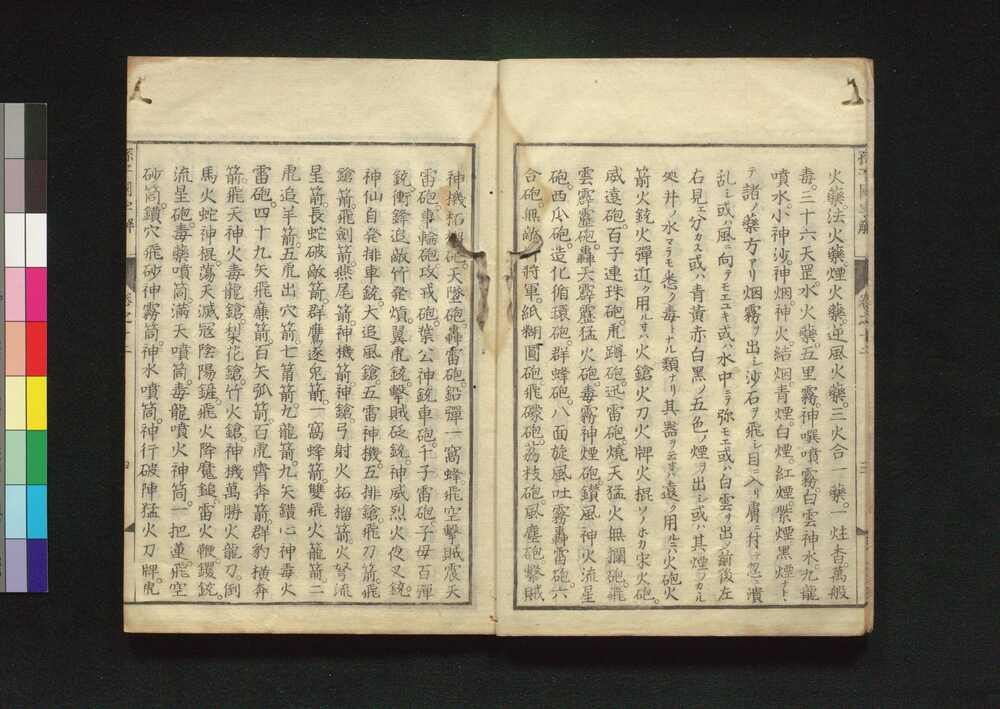 火藥法火藥煙火藥逆風火藥三火合一藥一炷香萬般
毒三十六天罡水火藥五里霧神噀噴霧白雲神水九龍
噴水小神沙神烟神火結烟青煙白煙紅煙紫煙黑煙ナト
テ諸ノ藥方アリ烟霧ヲ出シ沙石ヲ飛シ目ニ入リ膚ニ付テ忽ニ潰
乱シ或ハ風ニ向テモエキ或ハ水中ニテ弥モエ或ハ白雲ヲ出シ前後左
右見ヱ分カス或ハ青黄赤白黒ノ五色ノ煙ヲ出シ或ハ其煙フカル
処井ノ水マテモ悉ク毒トナル類ナリ其器ヲ云ヘハ遠ク用ルニハ火砲火
箭火銃火彈近ク用ルニハ火鎗火刀火牌火棍ソノホカ宋火砲
威遠砲百子連珠砲虎蹲砲迅雷砲燒天猛火無攔砲飛
雲霹靂砲轟天霹靂猛火砲毒霧神煙砲鑽風神火流星
砲西瓜砲造化循環砲群蜂砲八面旋風吐霧轟雷砲六
合砲無敵竹將軍紙糊圓砲飛礞砲荔枝砲風塵砲擊賊
神機柘榴砲天墜砲轟雷砲鉛彈一窩蜂飛空擊賊震天
雷砲車輪砲攻戎砲葉公神銃車砲千子雷砲子母百彈
銃衝鋒追敵竹発熕翼虎銃擊賊砭銃神威烈火夜叉銃
神仙自発排車銃大追風鎗五雷神機五排鎗飛刀箭飛
鎗箭飛劍箭燕尾箭神機箭神鎗弓射火柘榴箭火弩流
星箭長蛇破敵箭群鷹逐兎箭一窩蜂箭雙飛火籠箭二
虎追羊箭五虎出穴箭七筩箭九龍箭九矢鑽心神毒火
雷砲四十九矢飛廉箭百矢弧箭百虎齊奔箭群豹横奔
箭飛天神火毒龍鎗梨花鎗竹火鎗神機萬勝火龍刀倒
馬火蛇神棍蕩天滅冦陰陽鏟飛火降魔鎚雷火鞭钁銃
流星砲毒藥噴筒滿天噴筒毒龍噴火神筒一把蓮飛空
砂筒鑽穴飛砂神霧筒神水噴筒神行破陣猛火刀牌虎